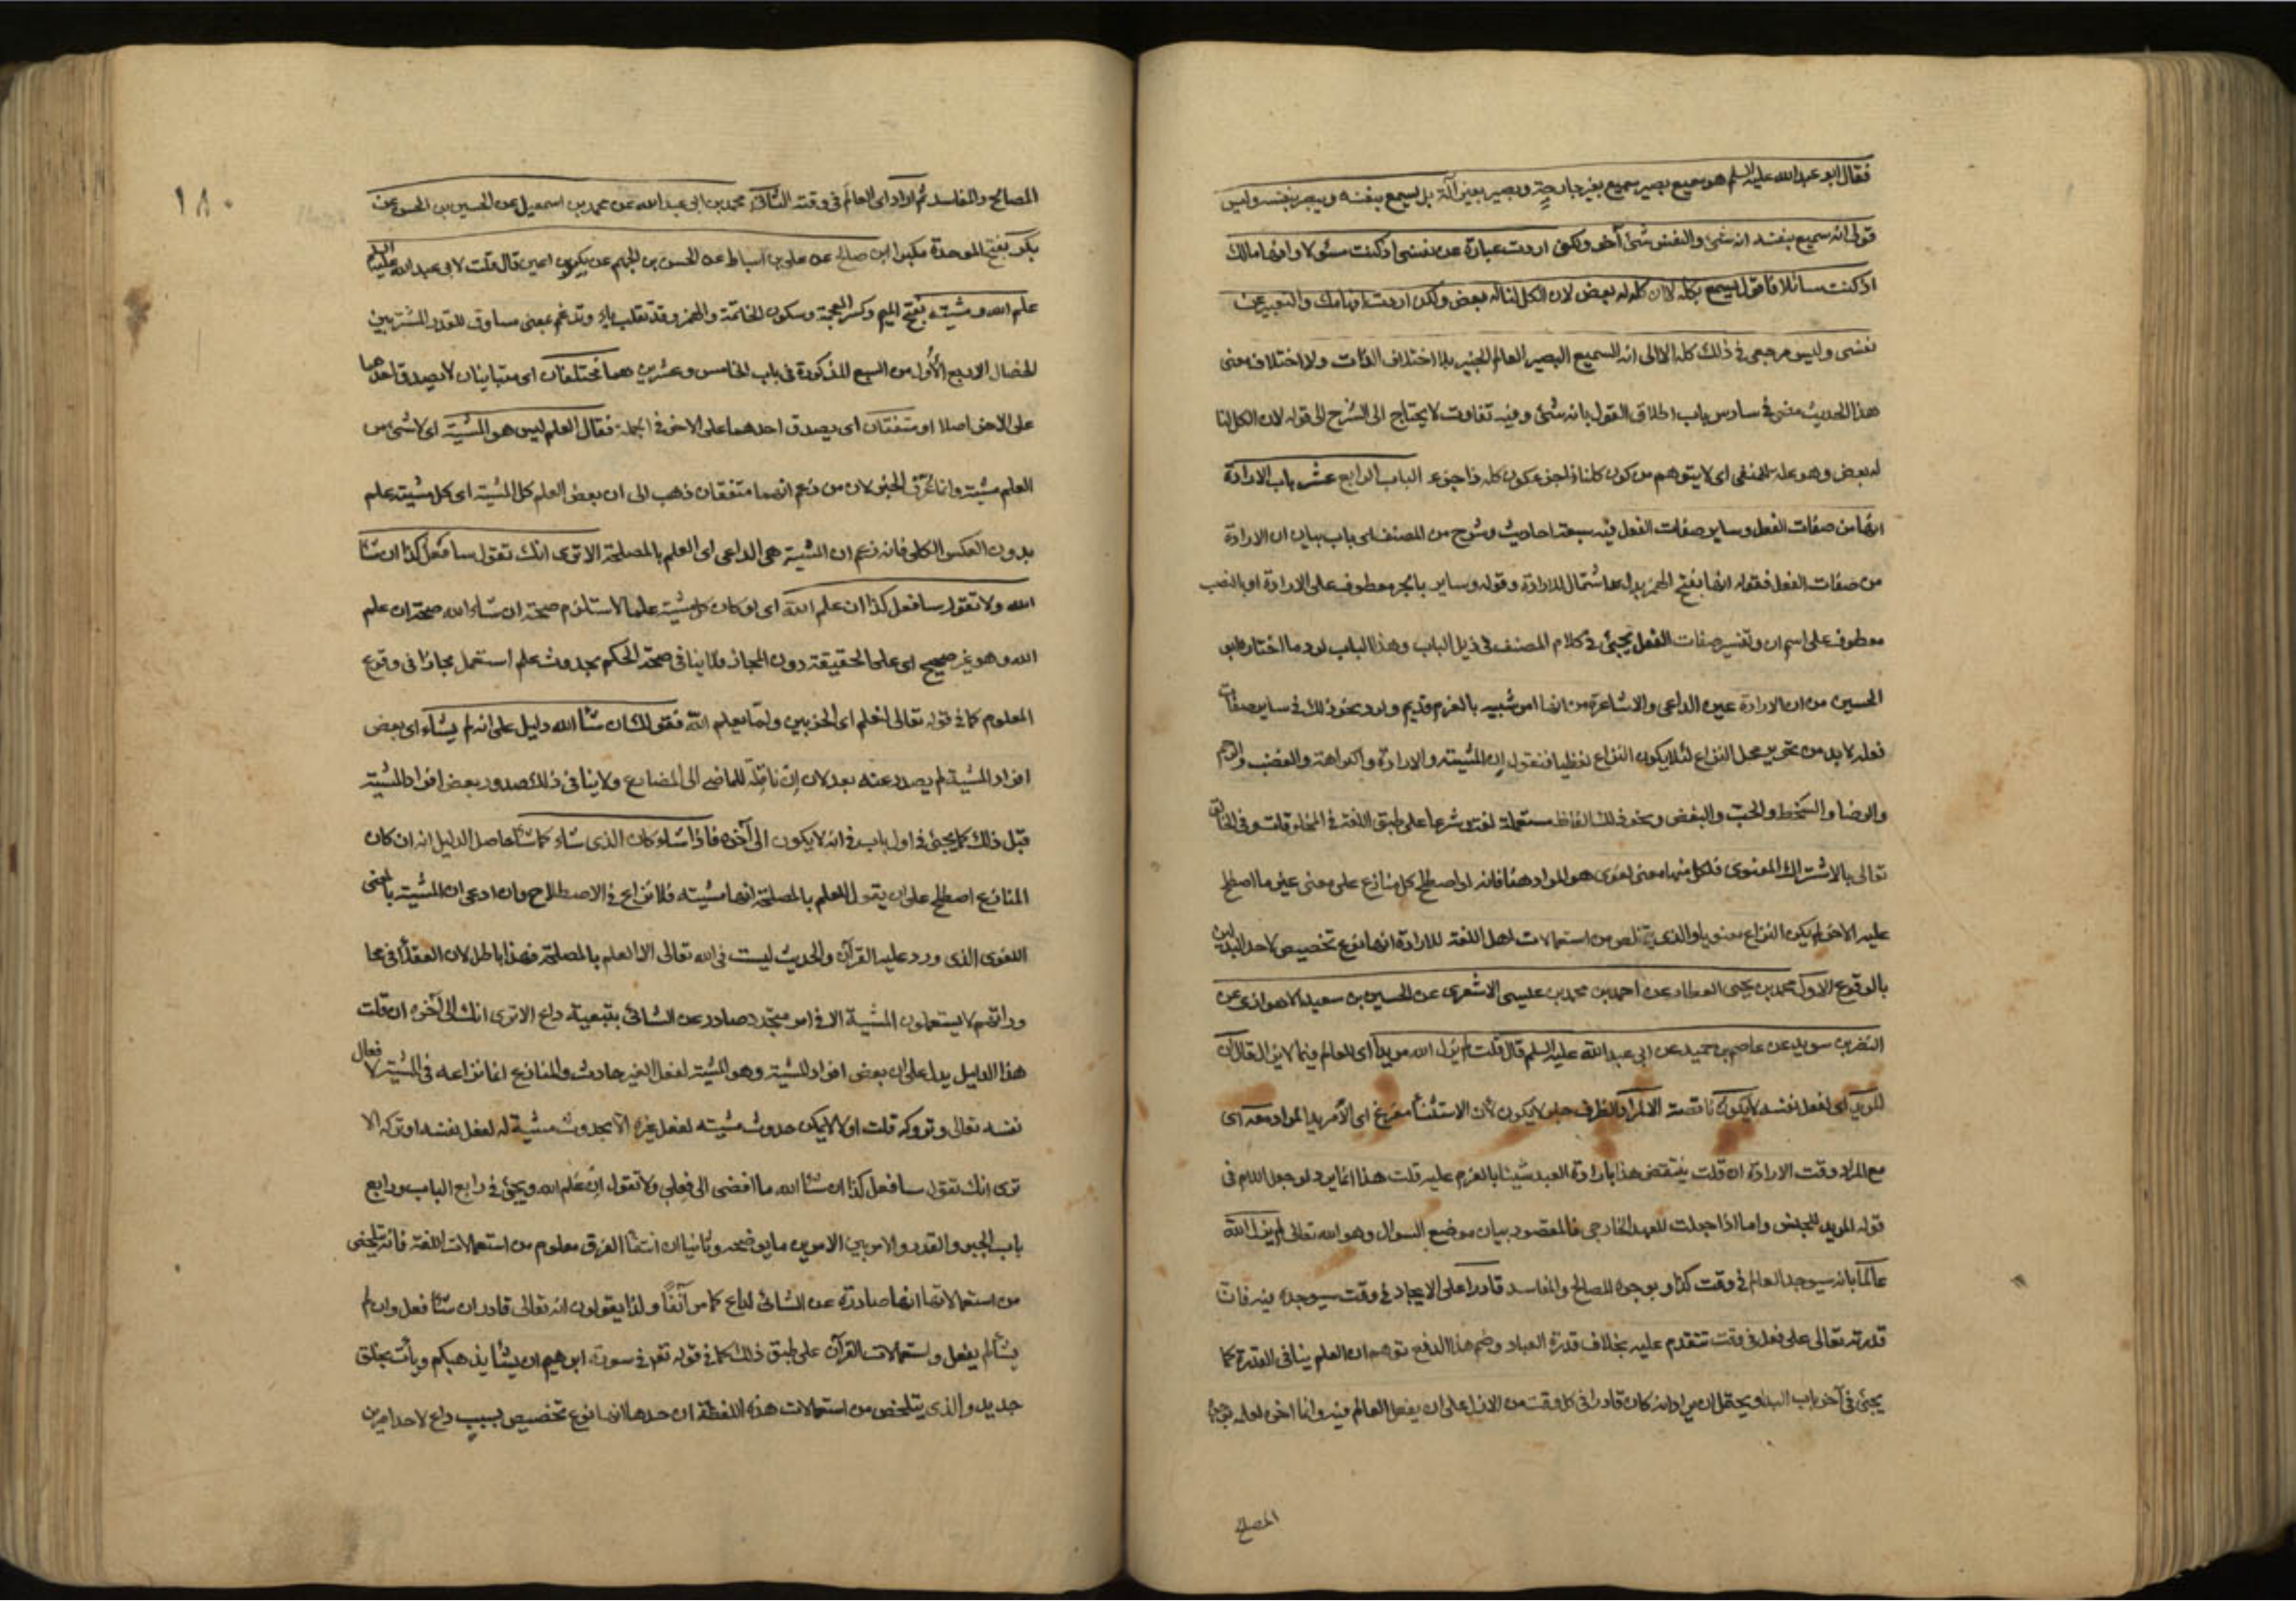 فقال ابو عبدالله عليه السلم هو سميع بصير سميع بغير جارحة وبصير بغير آلة بل يسمع بنفسه ويبصر بنفسه وليس
قولى انه سميع بنفسه انه شئ والنفس شئ آخر ولكنى اردت عبارة عن نفسى اذ كنت مسئولا وافهاما لك
اذ كنت سائلا فاقول يسمع بكله لا ان كله له بعض لان الكل لنا له بعض ولكن اردت افهامك والتعبير عن
نفسى وليس مرجعى فى ذلك كله الا الى انه السميع البصير العالم الخبير بلا اختلاف الذات ولا اختلاف معنى
هذا الحديث مضى فى سادس باب اطلاق القول بانه شئ وفيه تفاوت لا يحتاج الى الشرح الى قوله لان الكل لنا
له بعض وهو علة للمنفى اى لا يتوهم من كون كلنا ذا جزء كون كله ذا جزء الباب الرابع عشر باب الارادة
انها من صفات الفعل وساير صفات الفعل فيه سبعة احاديث وشرح من المصنف اى باب بيان ان الارادة
من صفات الفعل فقوله انها بفتح الهمز بدل اشتمال للارادة وقوله وساير بالجر معطوف على الارادة او بالنصب
معطوف على اسم ان وتفسير صفات الفعل يجئ فى كلام المصنف فى ذيل الباب وهذا الباب لرد ما اختاره ابو
الحسين من ان الارادة عين الداعى والاشاعرة من انها امر شبيه بالعزم قديم ولرد نحو ذلك فى ساير صفات
فعله لا بد من تحرير محل النزاع لئلا يكون النزاع لفظيا فنقول ان المشيته والارادة والكراهة والغضب والرحم
والرضا والسخط والحب والبغض ونحو ذلك الفاظ مستعملة لغة وشرعا على طبق اللغة فى المخلوقات وفى الخالق
تعالى بالاشتراك المعنوى فلكل منها معنى لغوى هو المراد هنا فانه لو اصطلح كل منازع على معنى غير ما اصطلح
عليه الاخر لم يكن النزاع معنويا والذى يتلخص من استعمالات اهل اللغة للارادة انها نوع تخصيص لاحد البدلين
بالوقوع الاول محمد بن يحيى العطار عن احمد بن محمد بن عيسى الاشعرى عن الحسين بن سعيد الاهوازى عن
النضر بن سويد عن عاصم بن حميد عن ابى عبدالله عليه السلم قال قلت لم يزل الله مريدا اى للعالم فيما لا يزال قال ان
المريد اى لفعل نفسه لا يكون ناقصة الا لمراد الظرف خبر لا يكون لان الاستثناء مفرغ اى الا مريدا لمراد معه اى
مع المراد وقت الارادة ان قلت ينتقض هذا بارادة العبد شيئا بالعزم عليه قلت هذا انما يرد لو جعل اللام فى
قوله المريد للجنس واما اذا جعلت للعهد الخارجى فالمقصود بيان موضع السوال وهو الله تعالى لم يزل الله
عالما بانه سيوجد العالم فى وقت كذا وبوجوه المصالح والمفاسد قادرا على الايجاد فى وقت سيوجده فيه فان
قدرته تعالى على فعل فى وقت تتقدم عليه بخلاف قدرة العباد وضم هذا لدفع توهم ان العلم ينافى القدرة كما
يجئ فى آخر باب البداء ويحتمل ان يراد انه كان قادرا فى كل وقت من الازل على ان يفعل العالم فيه وانما اخره لعلمه بوجوه
المصالح
١٨٠
المصالح والمفاسد ثم اراد اى العالم فى وقته الثانى محمد بن ابى عبدالله عن محمد بن اسمعيل عن الحسين بن الحسن عن
بكر بفتح الموحدة مكبرا ابن صالح عن على بن اسباط عن الحسن بن الجهم عن بكير بن اعين قال قلت لابى عبدالله عليه السلم
علم الله ومشيته بفتح الميم وكسر المعجمة وسكون الخاتمة والهمز وقد تقلب ياء وتدغم بمعنى مساوق للقدر المشترك بين
الخصال الاربع الاول من السبع المذكورة فى باب الخامس وعشرين هما مختلفان اى متباينان لا يصدق احدهما
على الاخر اصلا او متفقان اى يصدق احدهما على الاخر فى الجملة فقال العلم ليس هو المشية اى لا شئ من
العلم مشية وانما عرف الخبر لان من زعم انهما متفقان ذهب الى ان بعض العلم كل المشية اى كل مشيته علم
بدون العكس الكلى فانه زعم ان المشية هى الداعى اى العلم بالمصلحة الا ترى انك تقول سافعل كذا ان شاء
الله ولا تقول سافعل كذا ان علم الله اى لو كان كل مشية علما لاستلزم صحة ان شاء الله صحة ان علم
الله وهو غير صحيح اى على الحقيقة دون المجاز فلا ينافى صحة الحكم بحدوث علم استعمل مجازا فى وقوع
المعلوم كما فى قوله تعالى لنعلم اى الحزبين ولما يعلم الله فقولك ان شاء الله دليل على انه لم يشاء اى بعض
افراد المشية لم يصدر عنه بعد لان ان ناقلة للماضى الى المضارع ولا ينافى ذلك صدور بعض افراد المشية
قبل ذلك كما يجئ فى اول باب فى انه لا يكون الى آخره فاذا شاء كان الذى شاء كما شاء حاصل الدليل انه ان كان
المنازع اصطلح على ان يقول للعلم بالمصلحة انها مشيته فلا نزاع فى الاصطلاح وان ادعى ان المشية بالمعنى
اللغوى الذى ورد عليه القرآن والحديث ليست فى الله تعالى الا العلم بالمصلحة فهذا باطل لان العقلاء فى محا
وراتهم لا يستعملون المشية الا فى امر متجدد صادر عن الشائى بتبعية داع الا ترى انك الى آخره ان قلت
هذا الدليل يدل على ان بعض افراد المشية وهو المشية لفعل الغير حادث والمنازع انما نزاعه فى المشية لافعال
نفسه تعالى وتروكه قلت اولا لا يمكن حدوث مشيته لفعل غيره الا بحدوث مشية له لفعل نفسه او تركه الا
ترى انك تقول سافعل كذا ان شاء الله ما افضى الى فعلى ولا تقول ان علم الله ويجئ فى رابع الباب ورابع
باب الجبر والقدر والامر بين الامرين ما يوضحه وثانيا ان انتفاء الفرق معلوم من استعمالات اللغة فانه يتلخص
من استعمالاتها انها صادرة عن الشائى لداع كما مر آنفا ولذا يقولون انه تعالى قادر ان شاء فعل وان لم
يشأ لم يفعل واستعمالات القرآن على طبق ذلك كما فى قوله تعالى فى سورة ابرهيم ان يشا يذهبكم ويأت بخلق
جديد والذى يتلخص من استعمالات هذه اللفظة ان حدها انها نوع تخصيص بسبب داع لاحد امرين